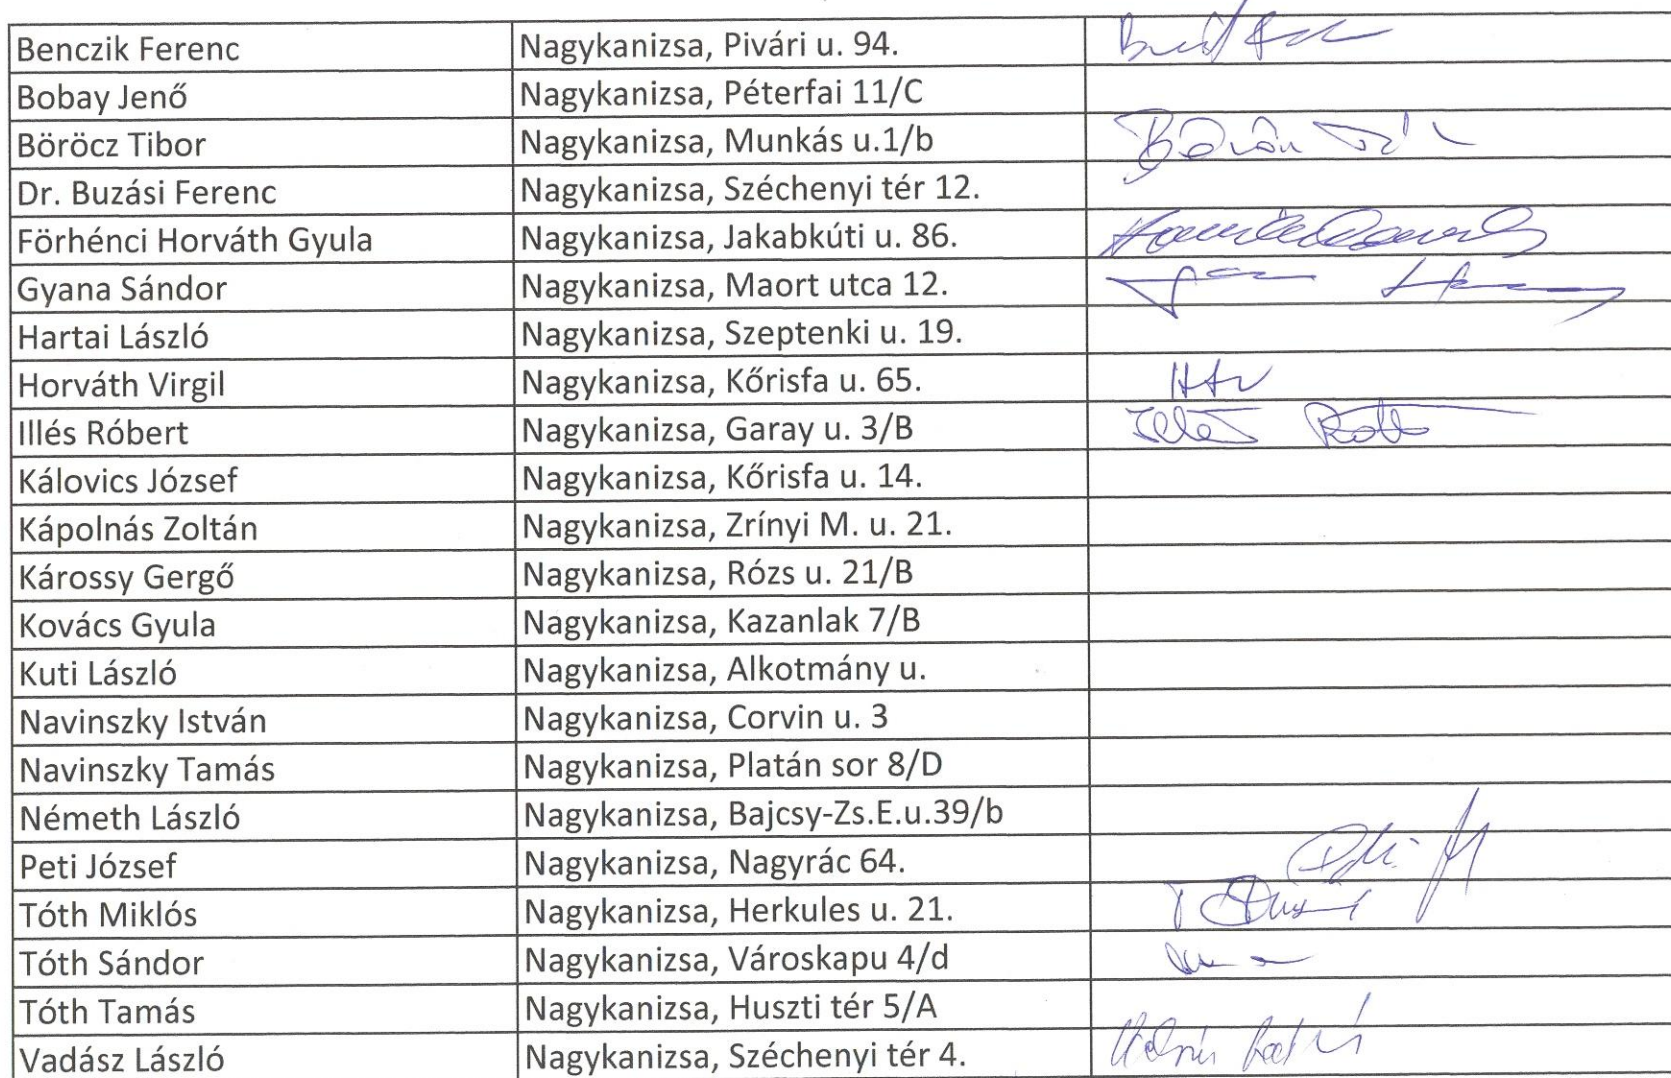 Benczik Ferenc Nagykanizsa, Pivári u. 94.
Bobay Jenő Nagykanizsa, Péterfai 11/C
Böröcz Tibor Nagykanizsa, Munkás u.1/b
Dr. Buzási Ferenc Nagykanizsa, Széchenyi tér 12.
Förhénci Horváth Gyula Nagykanizsa, Jakabkúti u. 86.
Gyana Sándor Nagykanizsa, Maort utca 12.
Hartai László Nagykanizsa, Szeptenki u. 19.
Horváth Virgil Nagykanizsa, Kőrisfa u. 65.
Illés Róbert Nagykanizsa, Garay u. 3/B
Kálovics József Nagykanizsa, Kőrisfa u. 14.
Kápolnás Zoltán Nagykanizsa, Zrínyi M. u. 21.
Károssy Gergő Nagykanizsa, Rózs u. 21/B
Kovács Gyula Nagykanizsa, Kazanlak 7/B
Kuti László Nagykanizsa, Alkotmány u.
Navinszky István Nagykanizsa, Corvin u. 3
Navinszky Tamás Nagykanizsa, Platán sor 8/D
Németh László Nagykanizsa, Bajcsy-Zs.E.u.39/b
Peti József Nagykanizsa, Nagyrác 64.
Tóth Miklós Nagykanizsa, Herkules u. 21.
Tóth Sándor Nagykanizsa, Városkapu 4/d
Tóth Tamás Nagykanizsa, Huszti tér 5/A
Vadász László Nagykanizsa, Széchenyi tér 4.